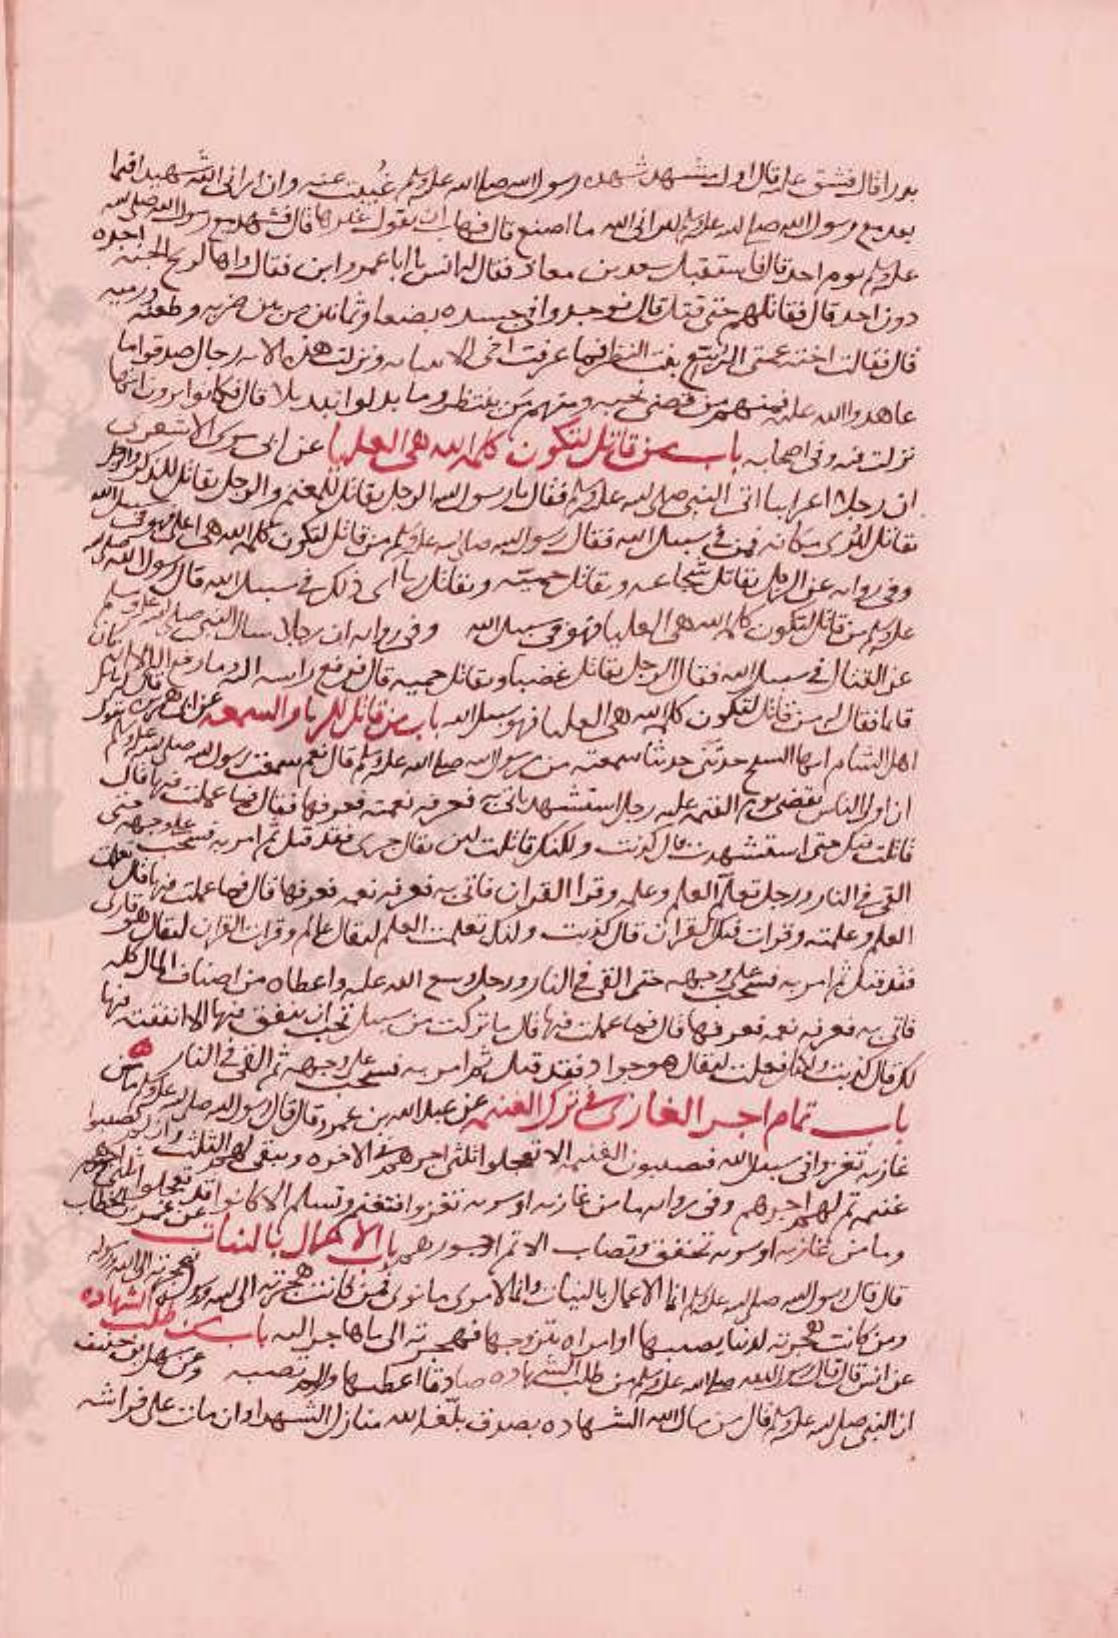 بدرا قال فشق عليه قال اول مشهد شهده رسول الله صلى الله عليه وسلم غيبت عنه وان اراني الله مشهدا فيما
بعد مع رسول الله صلى الله عليه وسلم ليراني الله ما اصنع قال فهاب ان يقول غيرها قال فشهد مع رسول الله صلى الله
عليه وسلم يوم احد قال فاستقبل سعد بن معاذ فقال له انس يا ابا عمرو اين فقال واها لريح الجنة اجده
دون احد قال فقاتلهم حتى قتل قال فوجد وافي جسده بضعا وثمانين من بين ضربه وطعنه ورميه
قال فقالت اخته عمتي الربيع بنت النضر فما عرفت اخي الا ببنانه ونزلت هذه الايه رجال صدقوا ما
عاهدوا الله عليه فمنهم من قضى نحبه ومنهم من ينتظر وما بدلوا تبديلا قال فكانوا يرون انها
نزلت فيه وفي اصحابه باب من قاتل لتكون كلمة الله هي العليا عن ابي موسى الاشعري
ان رجلا اعرابيا اتى النبي صلى الله عليه وسلم فقال يا رسول الله الرجل يقاتل للمغنم والرجل يقاتل للذكر والرجل
يقاتل ليرى مكانه فمن في سبيل الله فقال رسول الله صلى الله عليه وسلم من قاتل لتكون كلمة الله هي اعلى فهو في سبيل الله
وفي روايه عن الرجل يقاتل شجاعه ويقاتل حميه ويقاتل ريا اى ذلك في سبيل الله قال رسول الله صلى الله
عليه وسلم من قاتل لتكون كلمة الله هي العليا فهو في سبيل الله وفي روايه ان رجلا سال النبي صلى الله عليه وسلم
عن القتال في سبيل الله فقال الرجل يقاتل غضبا ويقاتل حميه قال فرفع راسه اليه وما رفع اليه الا انه كان
قايما فقال من قاتل لتكون كلمة الله هي العليا فهو سبيل الله باب من قاتل للريا والسمعه عن ابي هريره قال له ناتل
اهل الشام ايها الشيخ حدثني حديثا سمعته من رسول الله صلى الله عليه وسلم قال نعم سمعت رسول الله صلى الله عليه وسلم يقول
ان اول الناس يقضى يوم القيمه عليه رجل استشهد فاتي به فعرفه نعمته فعرفها فقال فما عملت فيها قال
قاتلت فيك حتى استشهدت قال كذبت ولكنك قاتلت لين يقال جرى فقد قيل ثم امر به فسحب على وجهه حتى
القي في النار ورجل تعلم العلم وعلمه وقرا القران فاتي به فعرفه نعمه فعرفها قال فما عملت فيها قال تعلمت
العلم وعلمته وقرات فيك القران قال كذبت ولكنك تعلمت العلم ليقال عالم وقرات القران ليقال هو قارى
فقد قيل ثم امر به فسحب على وجهه حتى القي في النار ورجل وسع الله عليه واعطاه من اصناف المال كله
فاتي به فعرفه نعمه فعرفها قال فما عملت فيها قال ما تركت من سبيل تحب ان ينفق فيها الا انفقت فيها
لك قال كذبت ولكنك فعلت ليقال هو جواد فقد قيل ثم امر به فسحب على وجهه ثم القي في النار
باب تمام اجر الغازى في ترك الغنيمه عن عبد الله بن عمرو قال قال رسول الله صلى الله عليه وسلم ما من
غازيه تغزو في سبيل الله فيصيبون الغنيمه الا تعجلوا ثلثي اجرهم من الاخره ويبقى لهم الثلث وان لم يصيبوا
غنيمه تم لهم اجرهم وفي روايه ما من غازيه او سريه تغزوا فتغنم وتسلم الا كانوا قد تعجلوا ثلثي اجرهم
وما من غازيه او سريه تخفق وتصاب الا تم اجورهم باب الاعمال بالنيات عن عمر بن الخطاب
قال قال رسول الله صلى الله عليه وسلم انما الاعمال بالنيات وانما لامرى ما نوى فمن كانت هجرته الى الله ورسوله فهجرته الى الله ورسوله
ومن كانت هجرته لدنيا يصيبها او امراه يتزوجها فهجرته الى ما هاجر اليه باب من طلب الشهاده
عن انس قال قال رسول الله صلى الله عليه وسلم من طلب الشهاده صادقا اعطيها ولو لم تصبه وعن سهل بن حنيف
ان النبي صلى الله عليه وسلم قال من سال الله الشهاده بصدق بلغه الله منازل الشهدا وان مات على فراشه